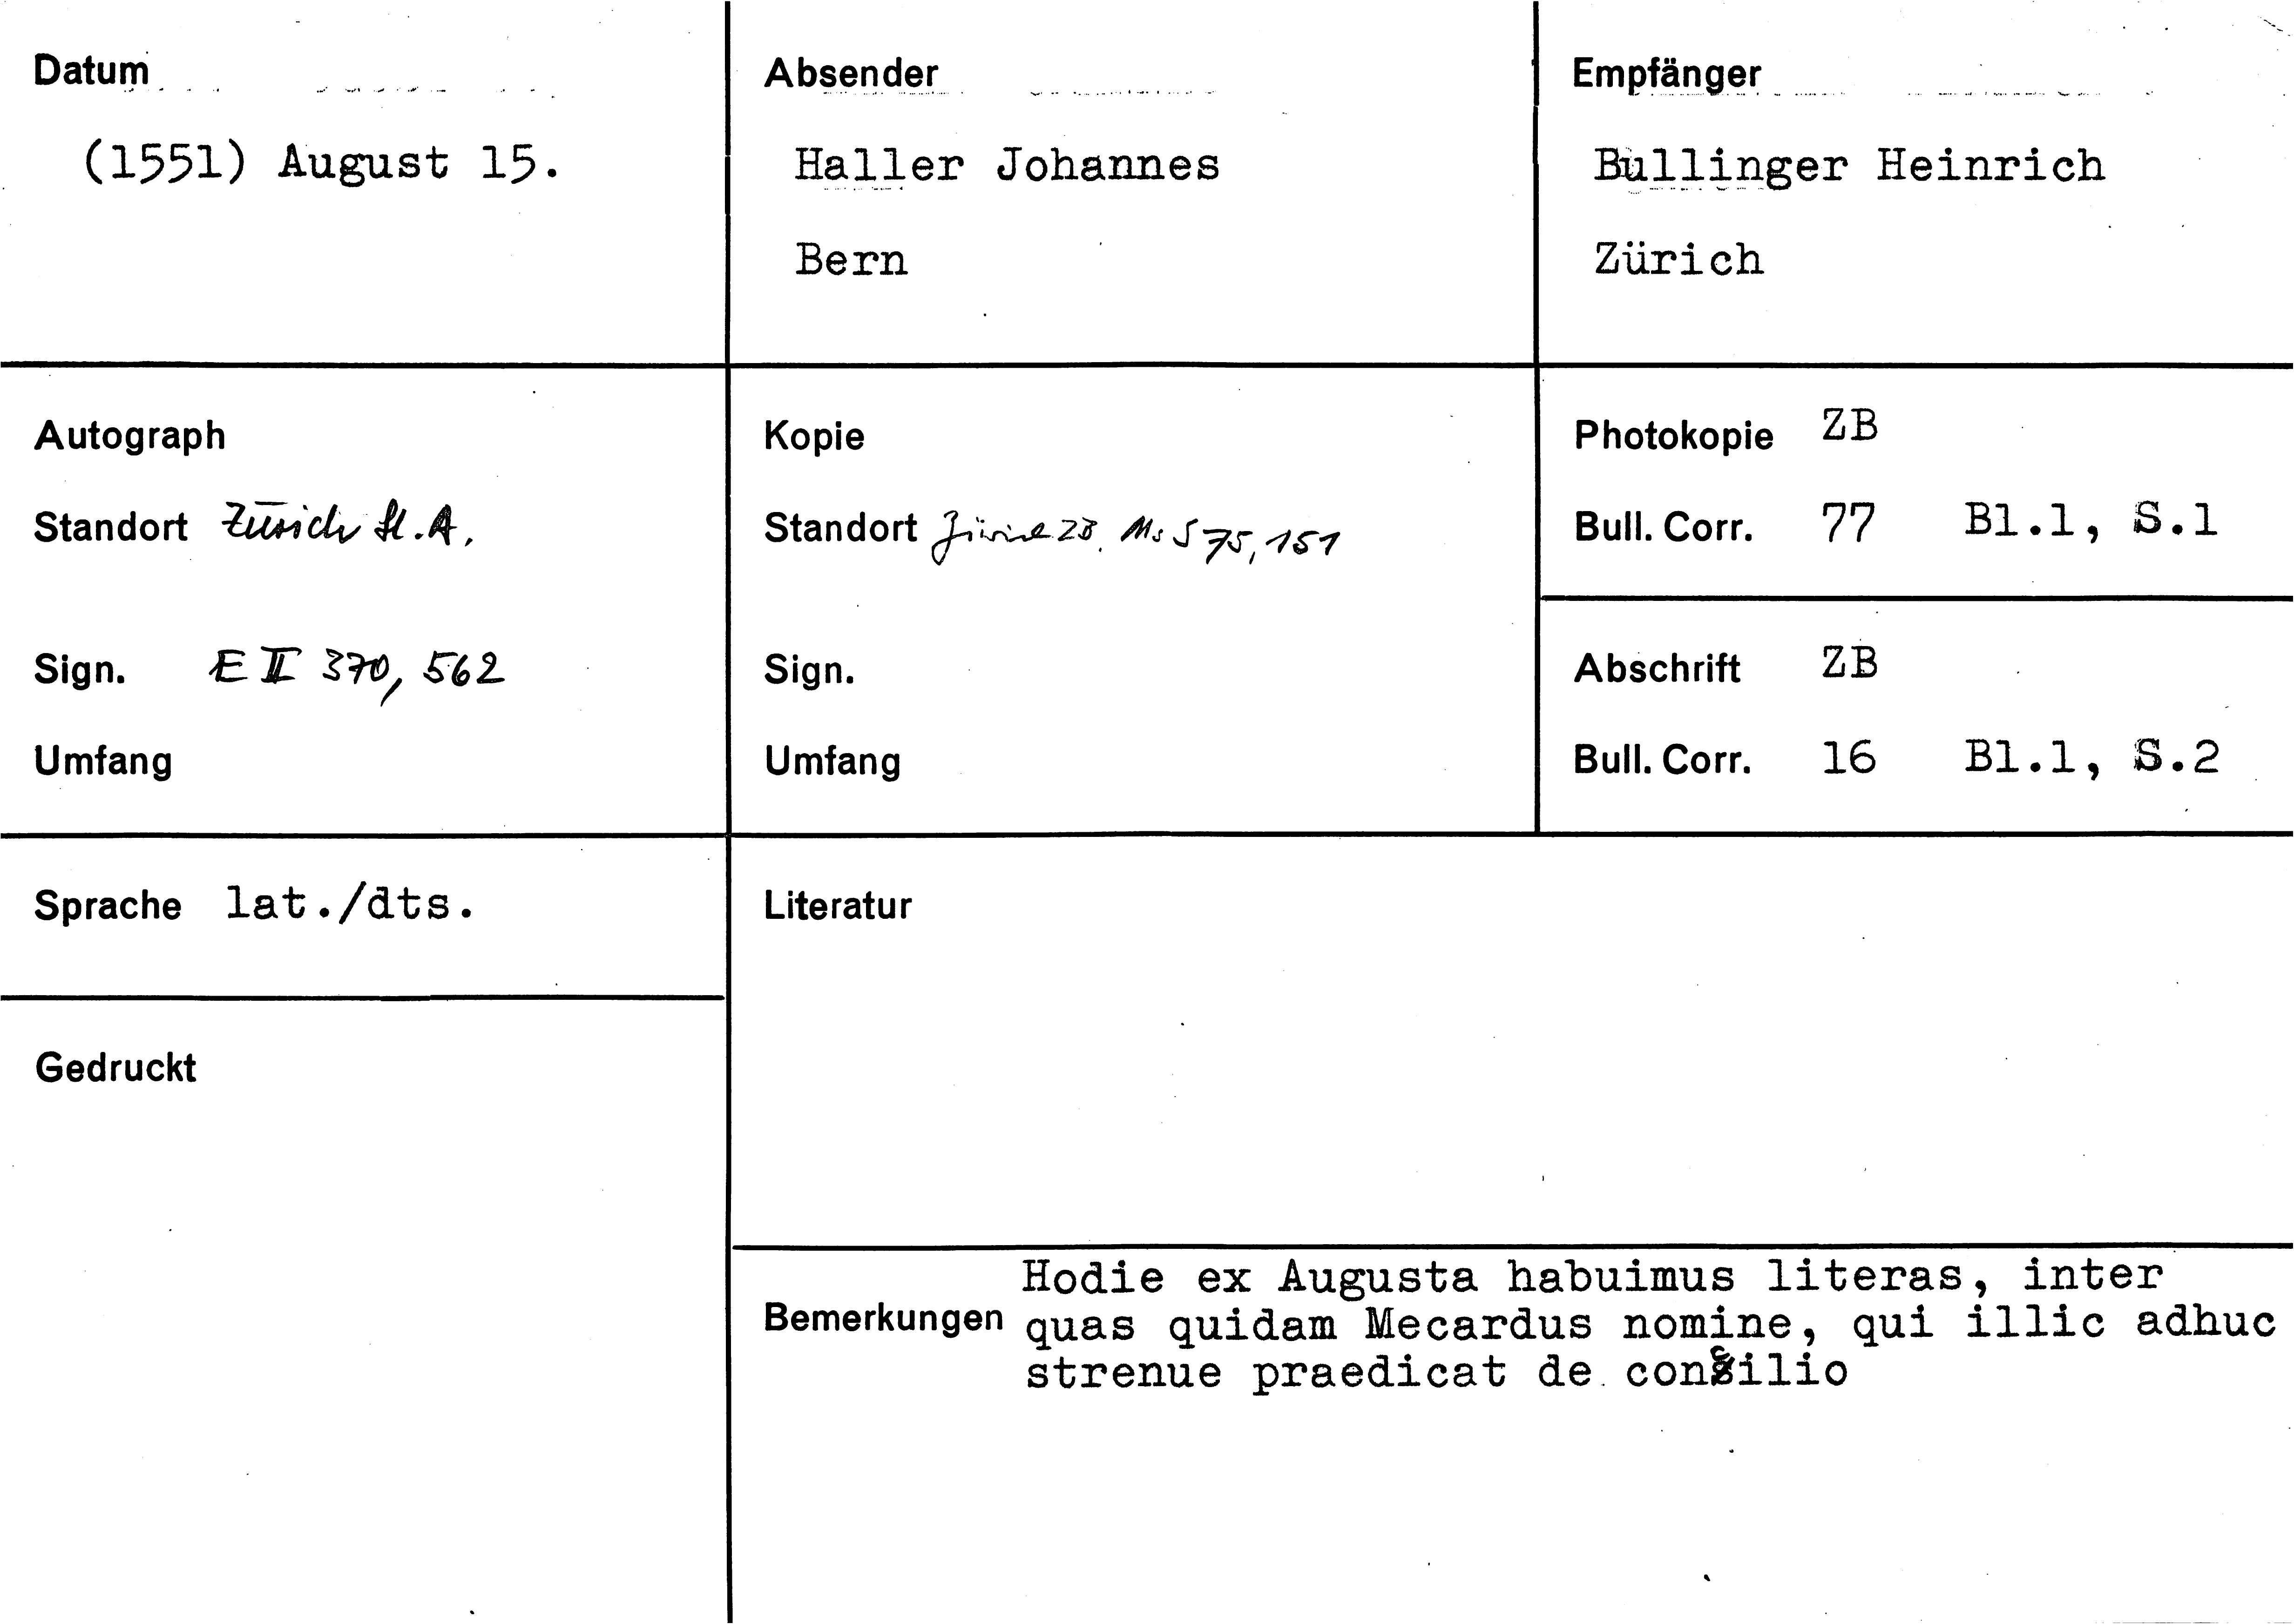 Datum
(1551) August 15.
Absender
Haller Johannes
Bern
Empfänger
Bullinger Heinrich
Zürich
Autograph
Standort Zürich St.A.
Sign. E II 370, 562
Umfang
Kopie
Standort Zürich ZB. Ms S 75, 151
Sign.
Umfang
Photokopie ZB
Bull. Corr. 77 Bl.1, S.1
Abschrift ZB
Bull. Corr. 16 Bl.1, S.2
Sprache lat./dts.
Gedruckt
Literatur
Bemerkungen
Hodie ex Augusta habuimus literas, inter
quas quidam Mecardus nomine, qui illic adhuc
strenue praedicat de consilio